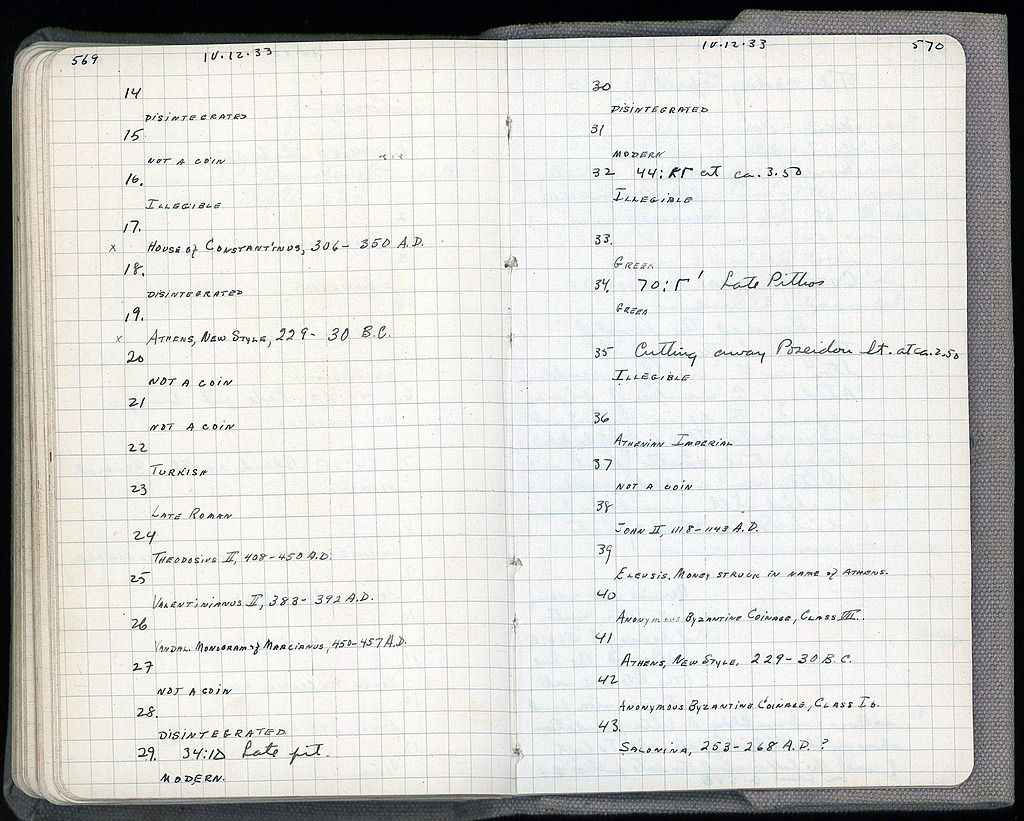 569
IV.12.33
14
DISINTEGRATED
15
NOT A COIN
16.
ILLEGIBLE
17.
x HOUSE of CONSTANTINUS, 306- 350 A.D.
18.
DISINTEGRATED
19.
x ATHENS, NEW STYLE, 229- 30 B.C.
20
NOT A COIN
21
NOT A COIN
22
TURKISH
23
LATE ROMAN
24
THEODOSIUS II, 408-450 A.D.
25
VALENTINIANUS II, 383- 392 A.D.
26
VANDAL. MONOGRAM of MARCIANUS, 450-457 A.D.
27
NOT A COIN
28.
DISINTEGRATED
29. 34:ΙΔ Late pit.
MODERN.
IV.12.33
570
30
DISINTEGRATED
31
MODERN
32 44: at ca. 3.50
ILLEGIBLE
33.
GREEK
34. 70:Γ' Late Pithos
GREEK
35 Cutting away Poseidon St. at ca. 2.50
ILLEGIBLE
36
ATHENIAN IMPERIAL
37
NOT A COIN
38
JOHN II, 1118-1143 A.D.
39
ELEUSIS. MONEY STRUCK IN NAME of ATHENS.
40
ANONYMOUS BYZANTINE COINAGE, CLASS VIII.
41
ATHENS, NEW STYLE, 229-30 B.C.
42
ANONYMOUS BYZANTINE COINAGE, CLASS I b.
43.
SALONINA, 253-268 A.D. ?